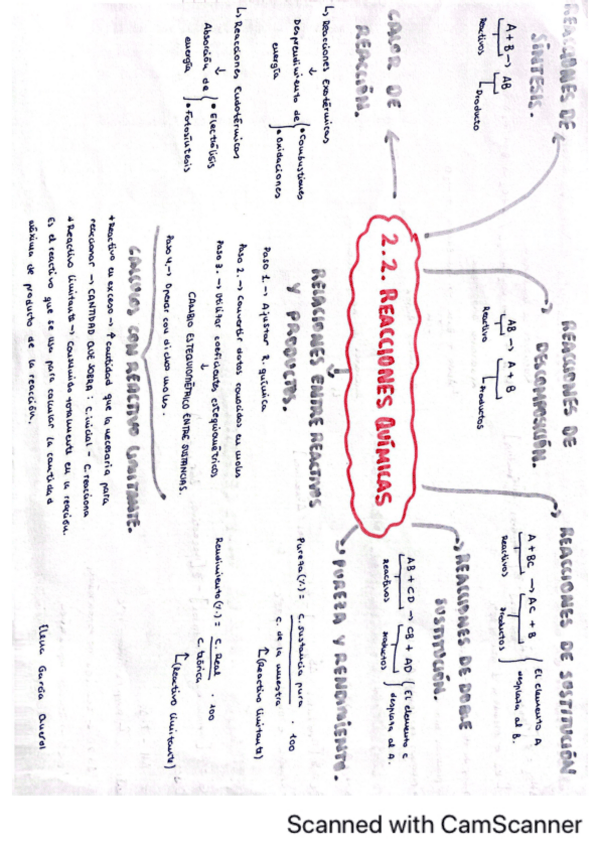 REACCIONES DE
SÍNTESIS.
A + B → AB
Reactivos
Producto
REACCIONES DE
DESCOMPOSICIÓN.
AB → A + B
Reactivo
Productos
REACCIONES DE SUSTITUCIÓN
A + BC → AC + B
Reactivos
Productos
El elemento A
desplaza al B.
REACCIONES DE DOBLE
SUSTITUCIÓN.
AB + CD → CB + AD
Reactivos
Productos
El elemento C
desplaza al A.
CALOR DE
REACCIÓN.
↳ Reacciones Exotérmicas
↓
Desprendimiento de
energía
• Combustiones
• Oxidaciones
↳ Reacciones Endotérmicas
↓
Absorción de
energía
• Electrólisis
• Fotosíntesis
2.2. REACCIONES QUÍMICAS
RELACIONES ENTRE REACTIVOS
Y PRODUCTOS.
Paso 1. → Ajustar R. química
Paso 2. → Convertir datos conocidos en moles
Paso 3. → Utilizar coeficientes estequiométricos
↓
CAMBIO ESTEQUIOMÉTRICO ENTRE SUSTANCIAS.
Paso 4. → Operar con dichos moles.
CÁLCULOS CON REACTIVO LIMITANTE.
+ Reactivo en exceso → ↑ cantidad que la necesaria para
reaccionar → CANTIDAD QUE SOBRA: C. inicial - C. reacciona
+ Reactivo limitante → Consumido totalmente en la reacción.
Es el reactivo que se usa para calcular la cantidad
máxima de producto de la reacción.
PUREZA Y RENDIMIENTO.
Pureza (%) = C. sustancia pura / C. de la muestra · 100
↑ (Reactivo limitante)
Rendimiento (%) = C. Real / C. teórica · 100
↑ (Reactivo limitante)
Elena García Querol
Scanned with CamScanner